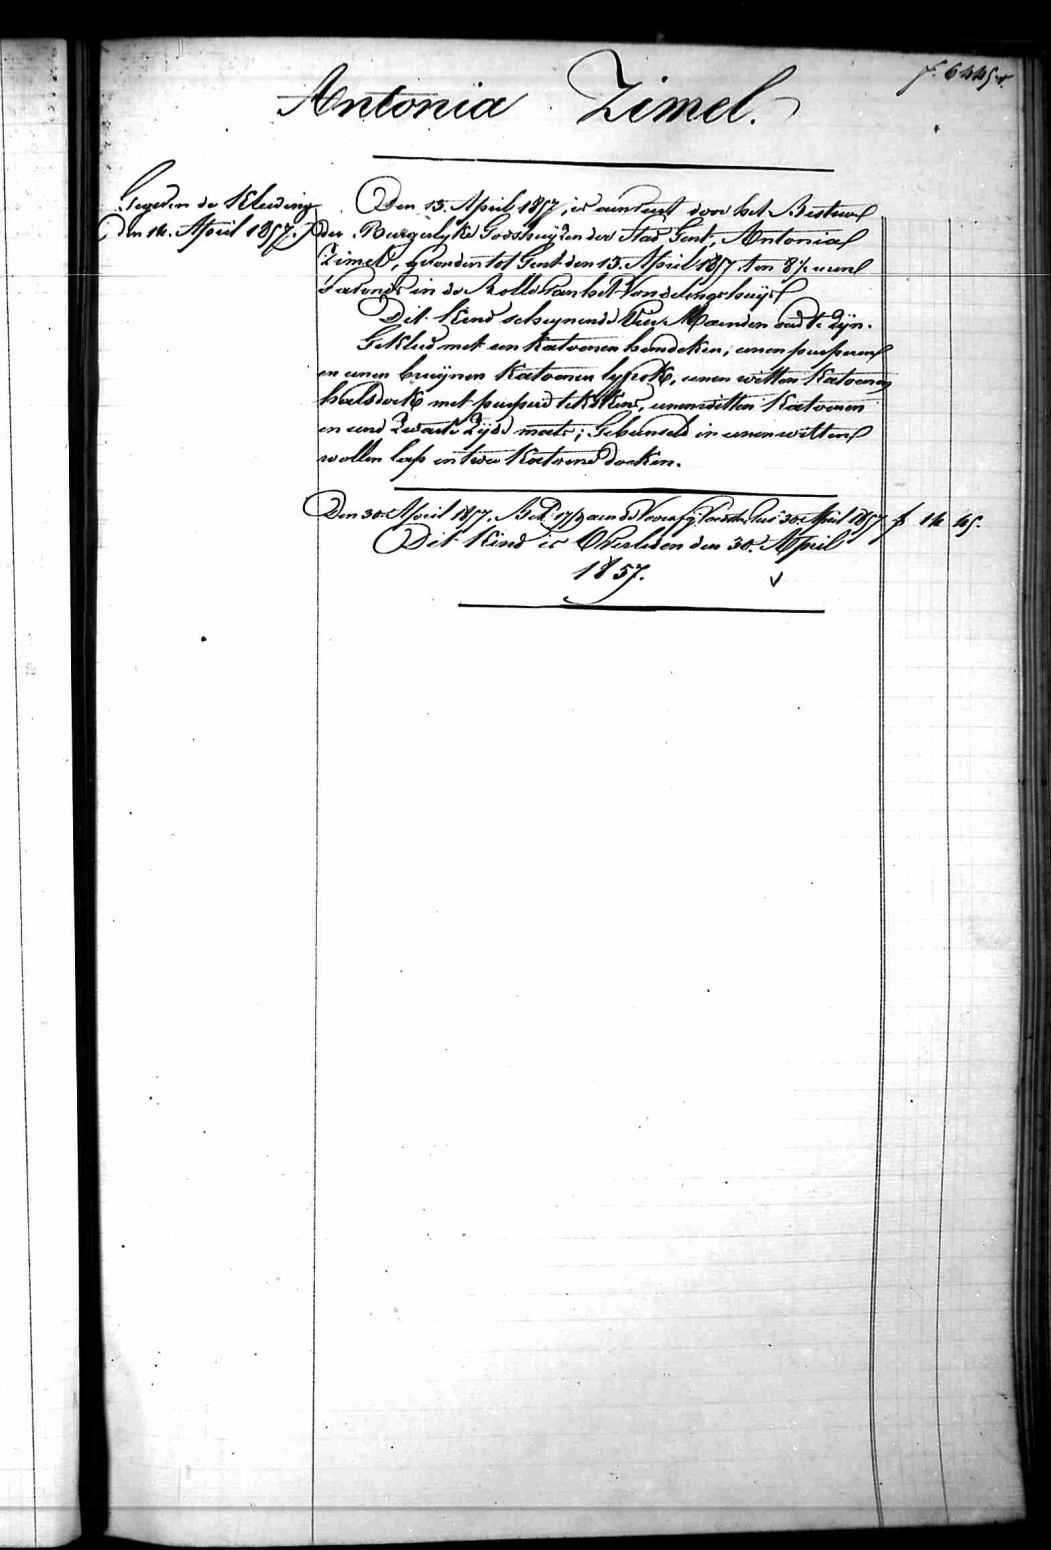 f. 6445 v.
Antonia Zimel.
Gegeven de Kleeding
Den 14. April 1857.
Den 13. April 1857, is aenveert door het Bestuer
der Burgerlyke Godshuijzen der Stad Gent, Antonia
Zimel, gevonden tot Gent den 13. April 1857 ten 8 1/2 uren
's avonds in de Rolle van het Vondelingshuijs
Dit kind scheynende Vier Maenden oud te Zyn.
Gekleed met een Katoenen hemdeken, eenen purperen
en eenen bruijnen Katoenen lyfrok, eenen witten Katoenen
halsdoek met purpere, eenen witten Katoenen
en eene Zwarte Zijde muts; Gebunseld in eenen witten
wollen lap en twee Katoene doeken.
Den 30. April 1857. 17/9 aen de 30 April 1857 f 14 45.
Dit Kind is Overleden den 30. April
1857.